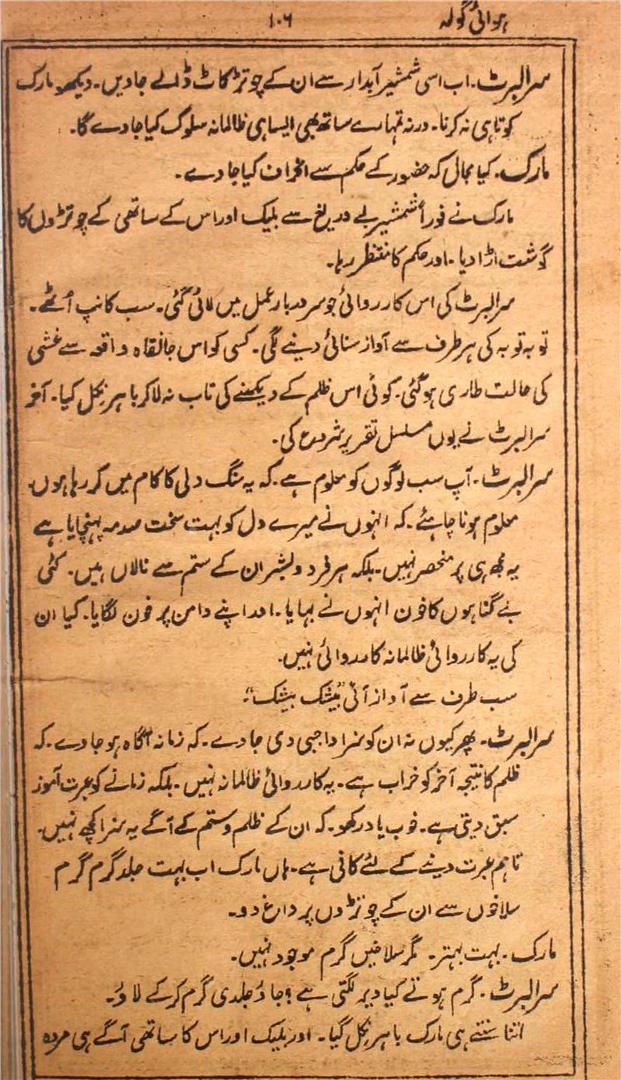 ہوائی گولہ ۱۰۶
سرالبرٹ۔ اب اسی شمشیر آبدار سے ان کے چوتڑ کاٹ ڈالے جاویں۔ دیکھو مارک
کوتاہی نہ کرنا۔ ورنہ تمہارے ساتھ بھی ایسا ہی ظالمانہ سلوک کیا جاوے گا۔
مارک۔ کیا مجال کہ حضور کے حکم سے انحراف کیا جاوے۔
مارک نے فوراً شمشیر بے دریغ سے بلیک اور اس کے ساتھی کے چوتڑوں کا
گوشت اڑا دیا۔ اور حکم کا منتظر رہا۔
سرالبرٹ کی اس کارروائی جو سر دربار عمل میں لائی گئی۔ سب کانپ اُٹھے۔
توبہ توبہ کی ہر طرف سے آواز سنائی دینے لگی۔ کسی کو اس جانکاہ واقعہ سے غشی
کی حالت طاری ہوگئی۔ کوئی اس ظلم کے دیکھنے کی تاب نہ لا کر باہر نکل گیا۔ آخر
سرالبرٹ نے یوں مسلسل تقریر شروع کی۔
سرالبرٹ۔ آپ سب لوگوں کو معلوم ہے۔ کہ یہ سنگ دلی کا کام میں کر رہا ہوں۔
معلوم ہونا چاہئے۔ کہ انہوں نے میرے دل کو بہت سخت صدمہ پہنچایا ہے
یہ مجھ ہی پر منحصر نہیں۔ بلکہ ہر فرد و بشر ان کے ستم سے نالاں ہیں۔ کئی
بے گناہوں کا خون انہوں نے بہایا۔ اور اپنے دامن پر خون لگایا۔ کیا ان
کی یہ کارروائی ظالمانہ کارروائی نہیں۔
سب طرف سے آواز آئی "بیشک بیشک"۔
سرالبرٹ۔ پھر کیوں نہ ان کو سزا واجبی دی جاوے۔ کہ زمانہ آگاہ ہو جاوے۔ کہ
ظلم کا نتیجہ آخر کو خراب ہے۔ یہ کارروائی ظالمانہ نہیں۔ بلکہ زمانے کو عبرت آموز
سبق دیتی ہے۔ خوب یاد رکھو۔ کہ ان کے ظلم و ستم کے آگے یہ سزا کچھ نہیں۔
تاہم عبرت دینے کے لئے کافی ہے۔ ہاں مارک اب بہت جلد گرم گرم
سلاخوں سے ان کے چوتڑوں پر داغ دو۔
مارک۔ بہت بہتر۔ مگر سلاخیں گرم موجود نہیں۔
سرالبرٹ۔ گرم ہوتے کیا دیر لگتی ہے؟ جاؤ جلدی گرم کرکے لاؤ۔
اتنا سنتے ہی مارک باہر نکل گیا۔ اور بلیک اور اس کا ساتھی آگے ہی مردہ